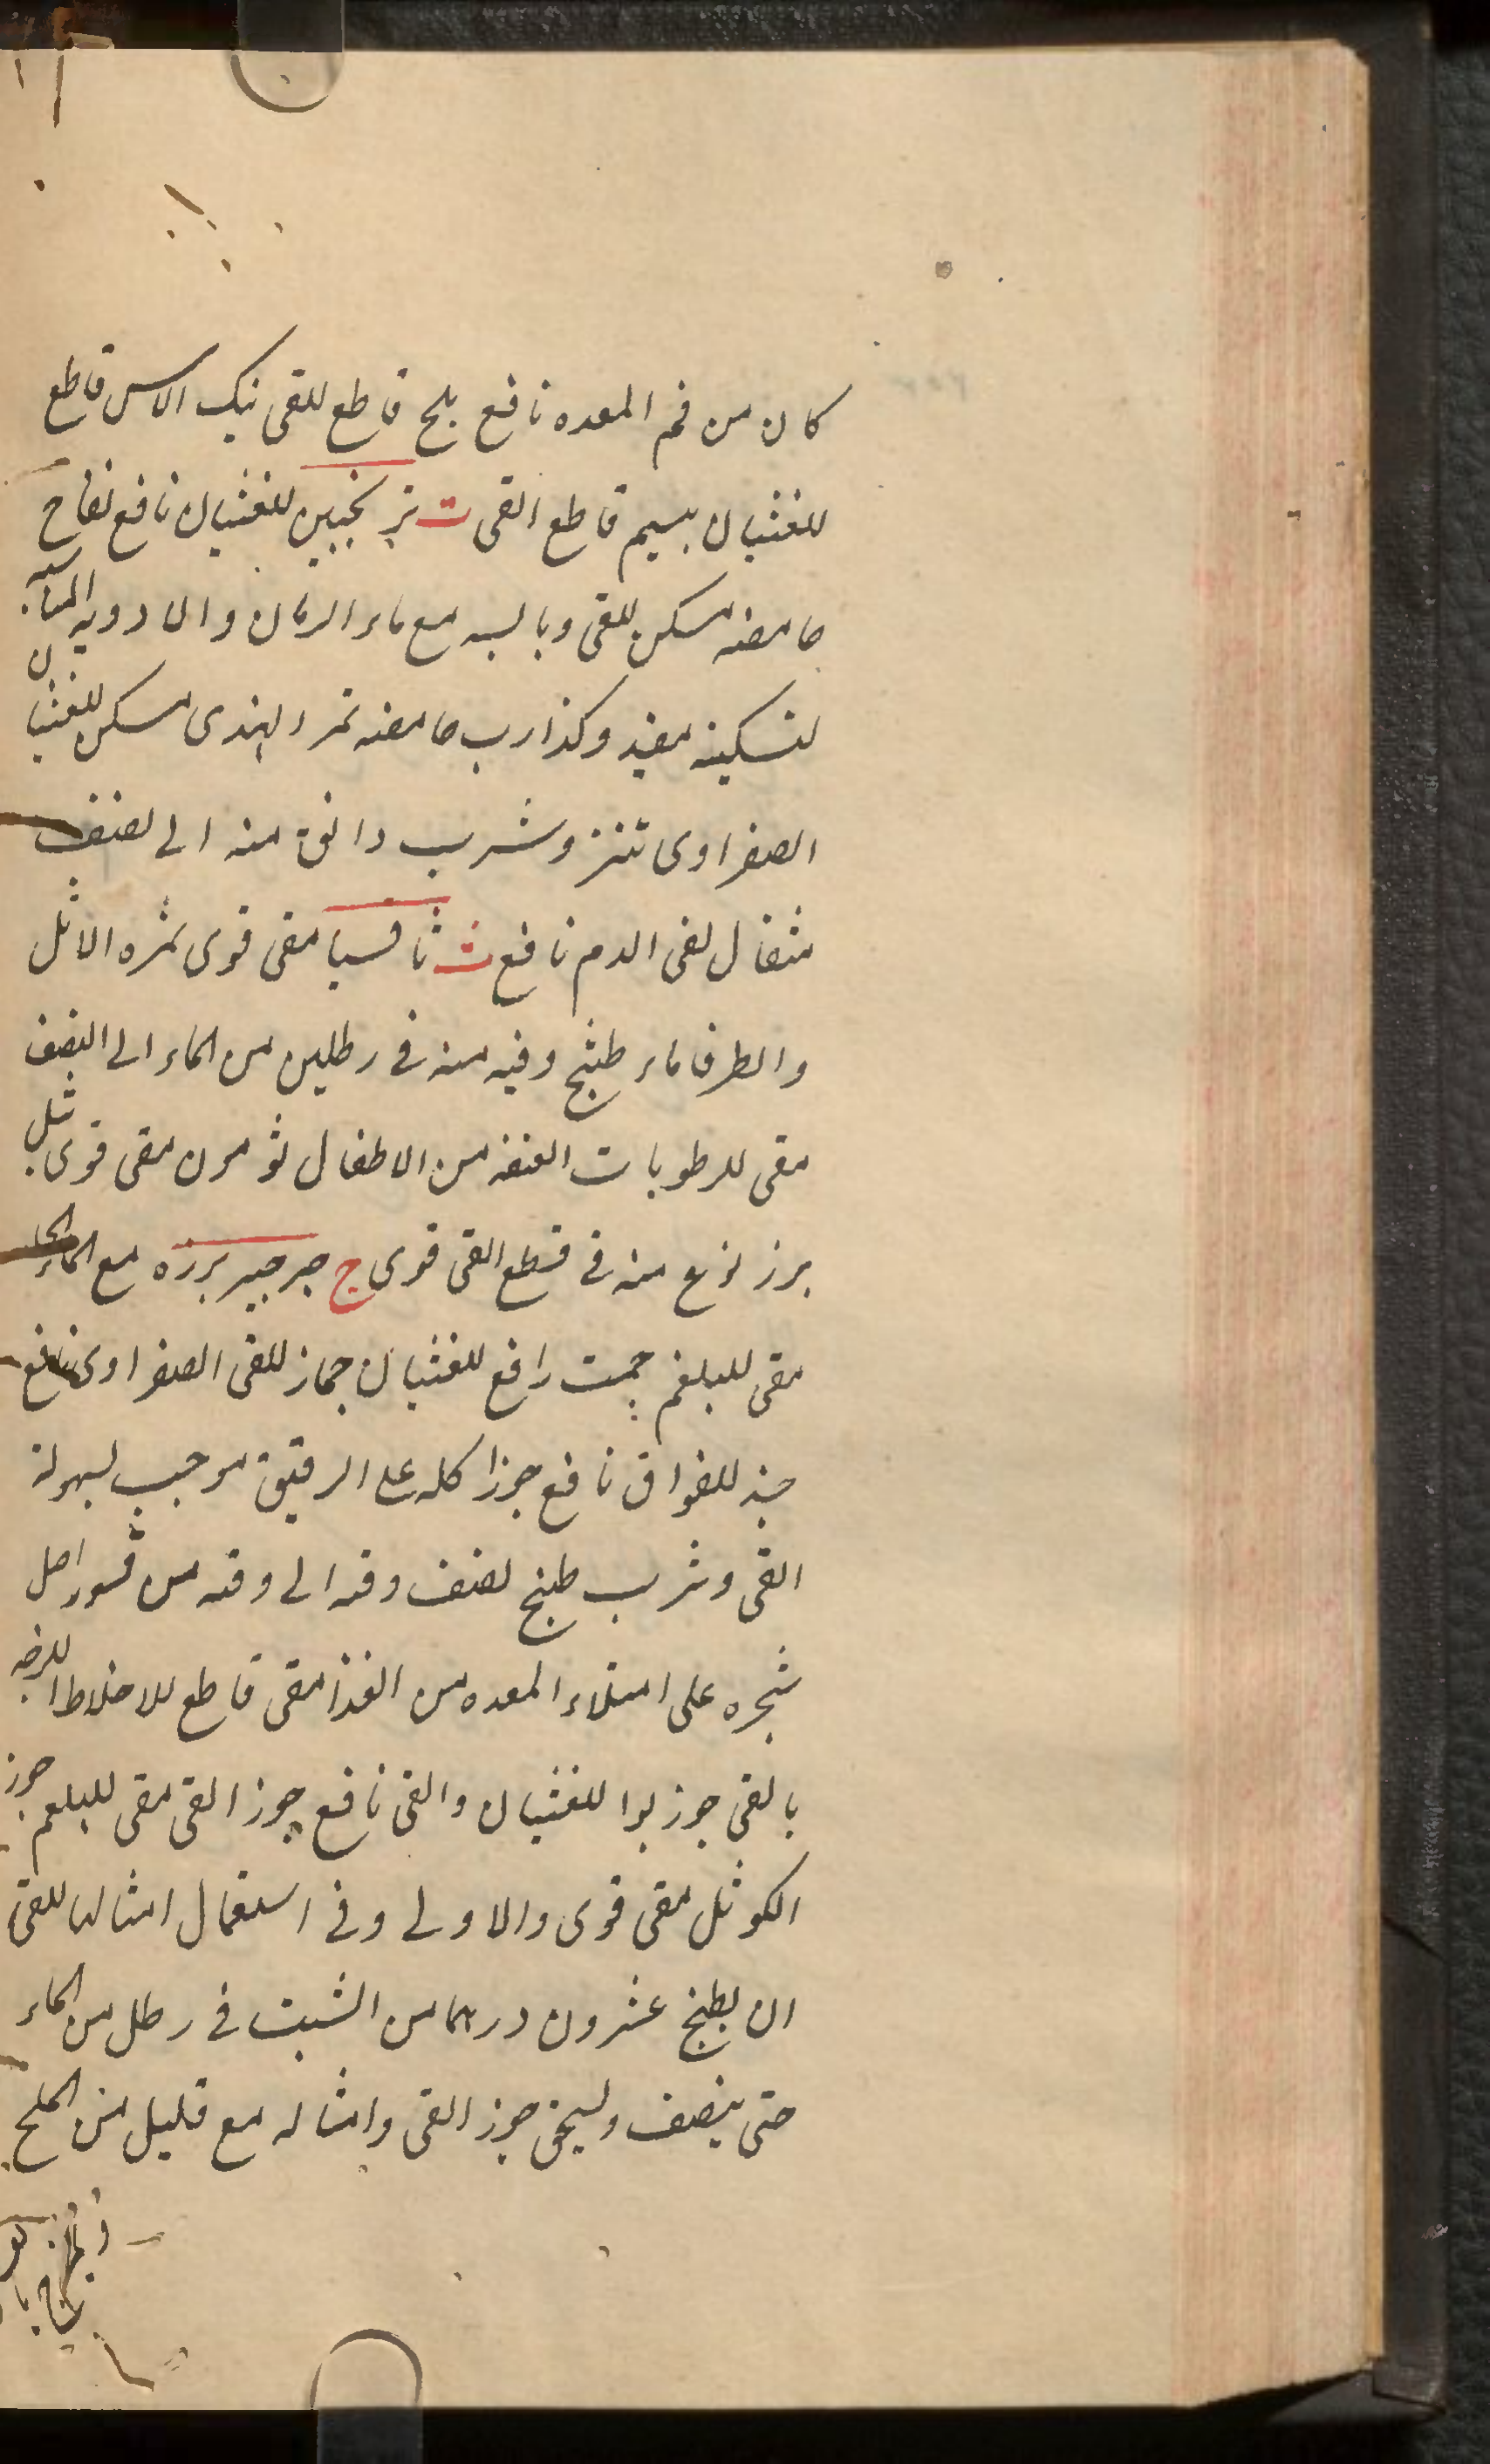 كان من فم المعده نافع بلح قاطع للقى بنك الاس قاطع
للغثيان بسيم قاطع القى ت ترنجبين للغثيان نافع تفاح
حامضه مسكن للقى وبالسه مع ماء الرمان والادويه
لتسكينه مفيد وكذا رب حامضه تمر الهندى مسكن للغثيان
الصفراوى تنتز وشرب دانق منه الى نصف
مثقال لقى الدم نافع ث ثافسيا مقى قوى ثمره الاثل
والطرفا ماء طبخ وقيه منه فى رطلين من الماء الى النصف
مقى للرطوبات العفنه من الاطفال ثومون مقى قوى ثيل
بزر نوع منه فى قطع القى قوى ج جرجير بزره مع الماء الحار
مقى للبلغم جمت رافع للغثيان جمار للقى الصفراوى نافع
جند للفواق نافع جوز اكله على الريق موجب لسهولة
القى وشرب طبخ نصف وقه الى وقه من قشور اصل
شجره على امتلاء المعده من الغذا مقى قاطع للاخلاط اللزجه
بالقى جوز بوا للغثيان والقى نافع جوز القى مقى للبلغم جوز
الكوثل مقى قوى والاولى وفى استعمال امثالها للقى
ان يطبخ عشرون درهما من الشبت فى رطل من الماء
حتى ينصف ويسحق جوز القى وامثاله مع قليل من الملح